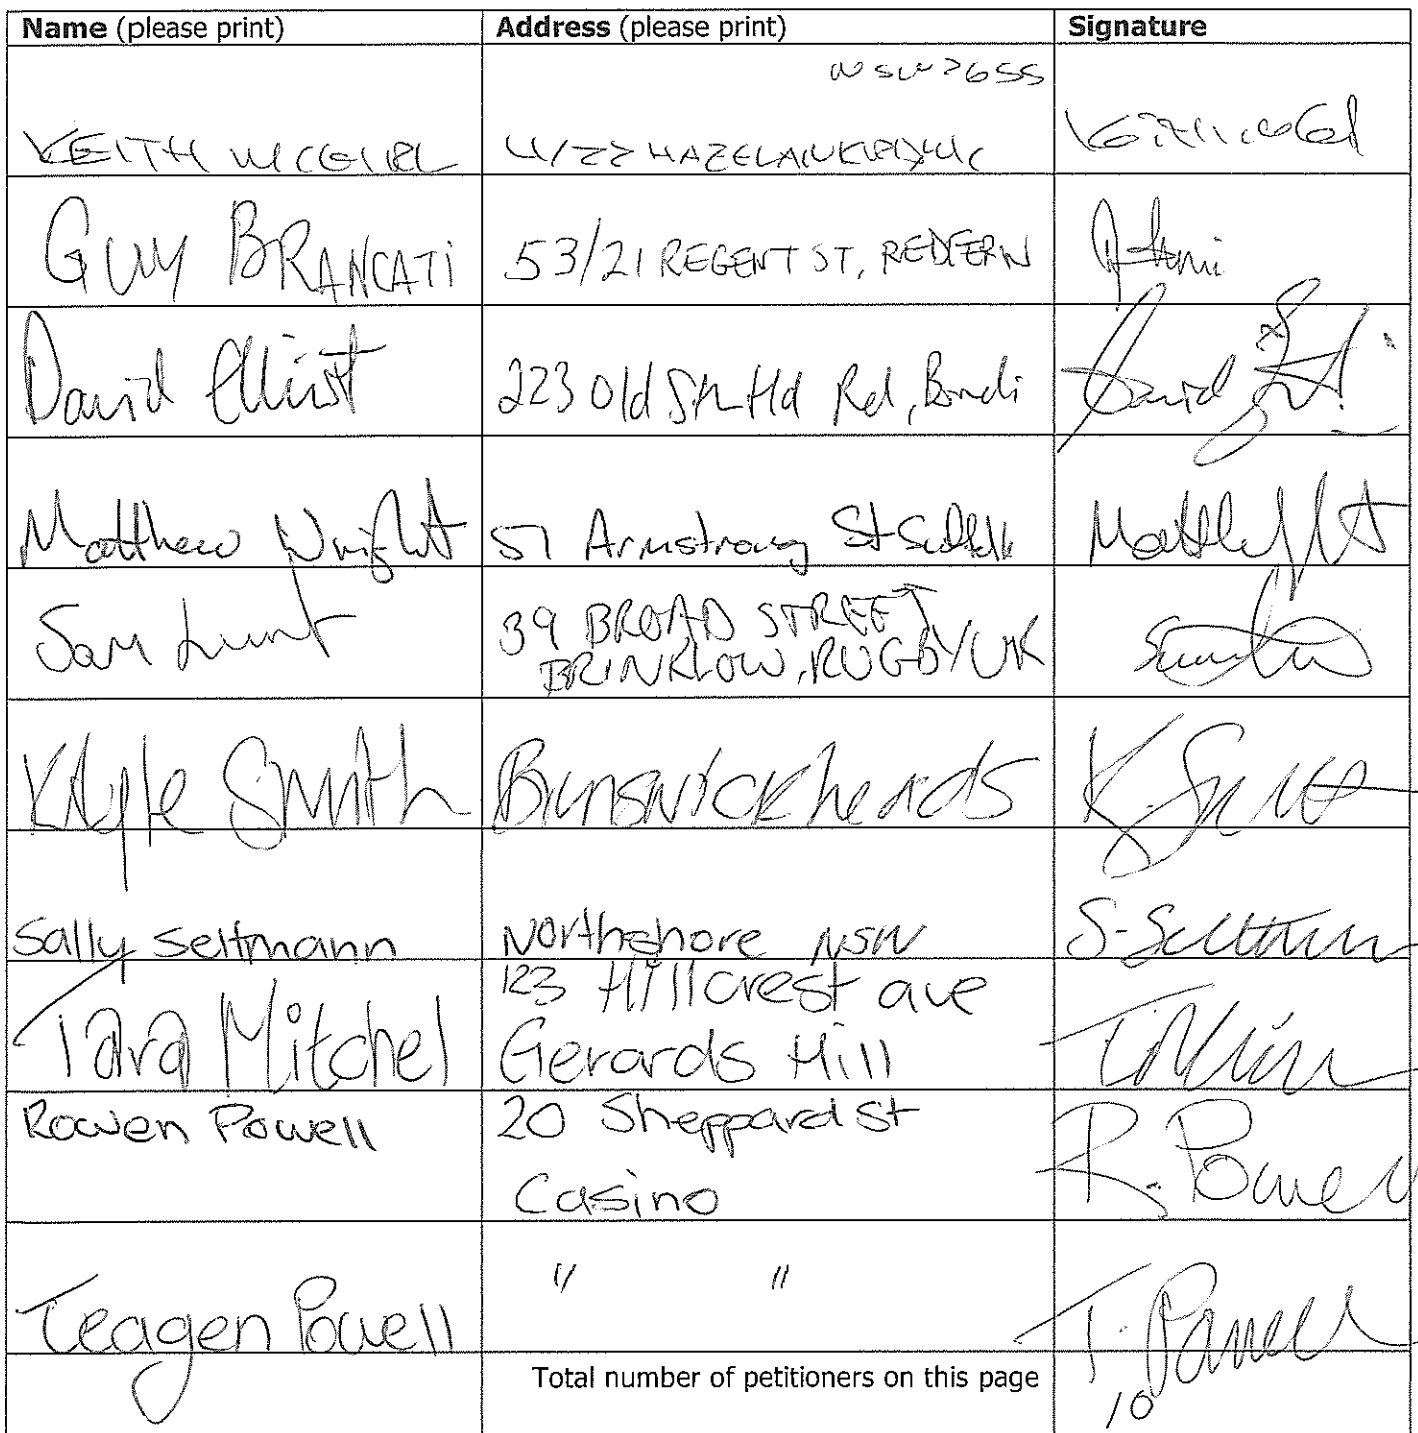 Name (please print) Address (please print) Signature
NSW 2655
KEITH MCGIRL 4/22
GUY BRANCATI 53/21 REGENT ST, REDFERN
David Elliott 223 Old Sth Hd Rd, Bondi David
Matthew Wright 57 Armstrong St
Sam Lunt 39 BROAD STREET
BRINKLOW, RUGBY/UK
Smith Brunswick heads K. Smith
Sally Seltmann Northshore NSW S. Seltmann
123 Hillcrest ave
Tara Mitchel Gerards Hill
Rowen Powell 20 Sheppard St R. Powell
Casino
Teagen Powell " " T. Powell
Total number of petitioners on this page 10